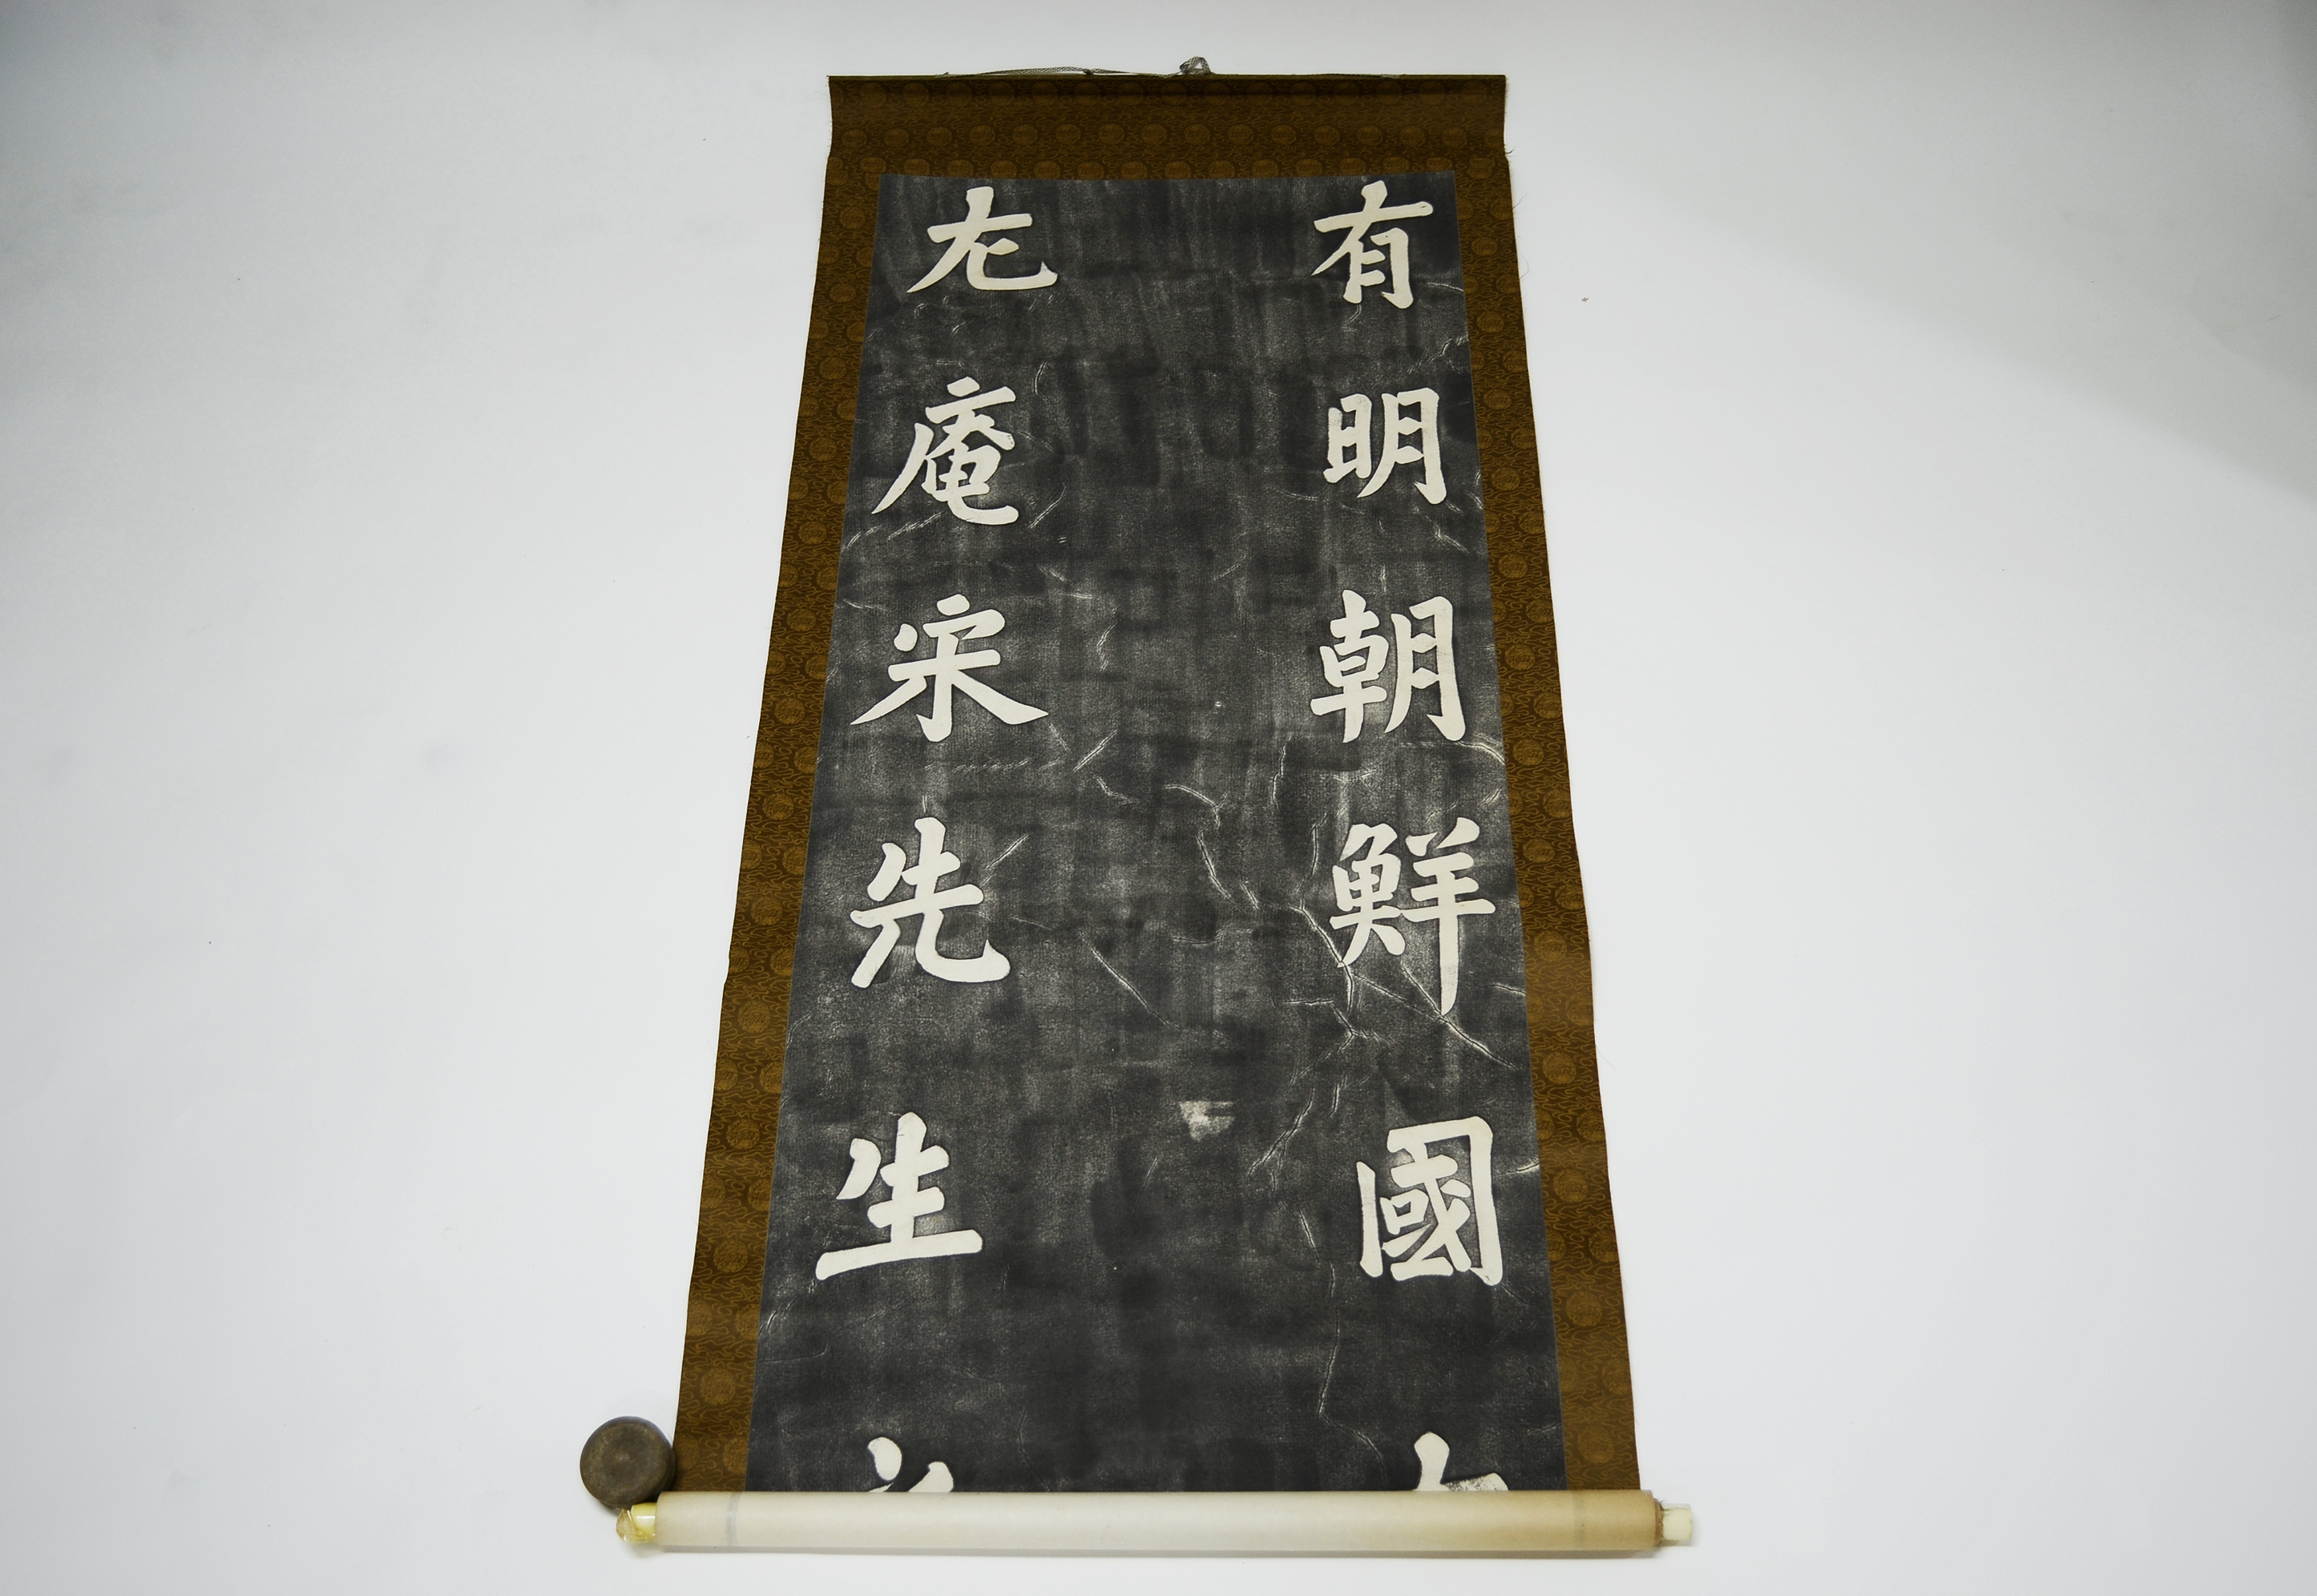 有明朝鮮國
尤庵宋先生